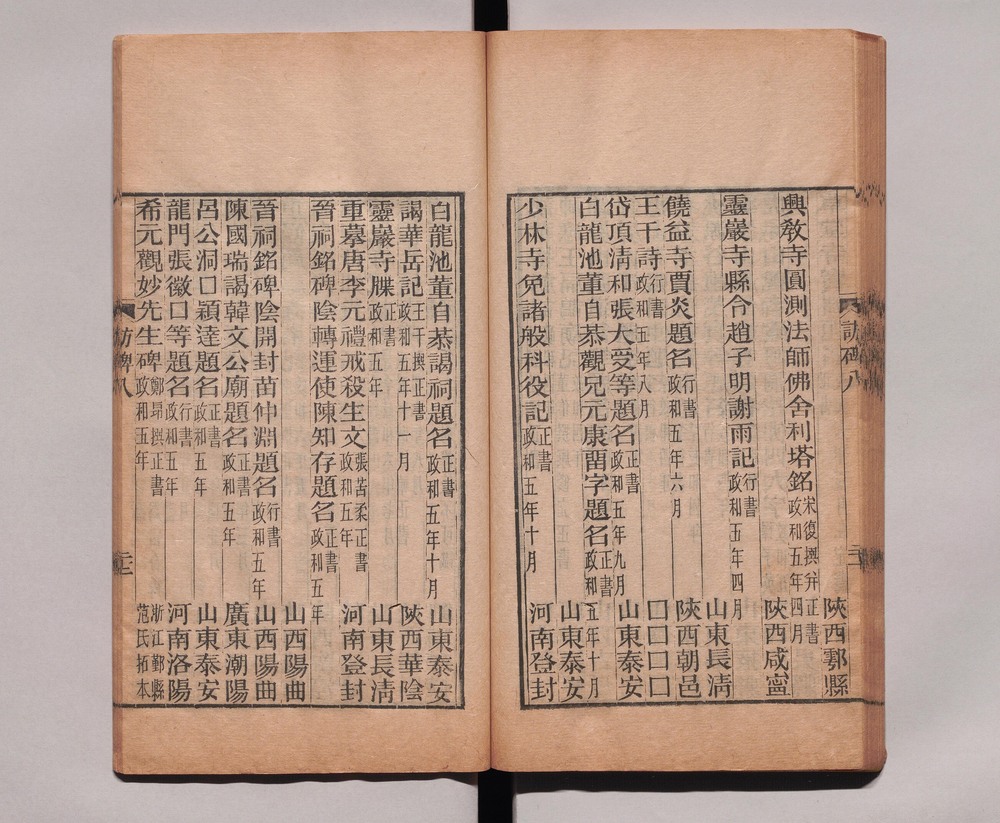 陝西鄠縣
興敎寺圓測法師佛舍利塔銘宋復撰并正書政和五年四月 陝西咸甯
靈巖寺縣令趙子明謝雨記行書政和五年四月
山東長清
饒益寺賈炎題名行書政和五年六月 陝西朝邑
王千詩行書政和五年八月 囗囗囗囗
岱頂清和張大受等題名正書政和五年九月 山東泰安
白龍池董自恭觀兄元康畱字題名正書政和五年十月
山東泰安
少林寺免諸般科役記正書政和五年十月 河南登封
訪碑八
二二
白龍池董自恭謁祠題名正書政和五年十月 山東泰安
謁華岳記王千撰正書政和五年十一月 陝西華陰
靈巖寺牒正書政和五年 山東長清
重摹唐李元禮戒殺生文張苦柔正書政和五年 河南登封
晉祠銘碑陰轉運使陳知存題名正書政和五年
山西陽曲
晉祠銘碑陰開封苗仲淵題名行書政和五年 山西陽曲
陳國瑞謁韓文公廟題名正書政和五年 廣東潮陽
呂公洞口潁達題名正書政和五年 山東泰安
龍門張徽口等題名行書政和五年 河南洛陽
希元觀妙先生碑鄭昻撰正書政和五年 浙江鄞縣范氏拓本
訪碑八
二二